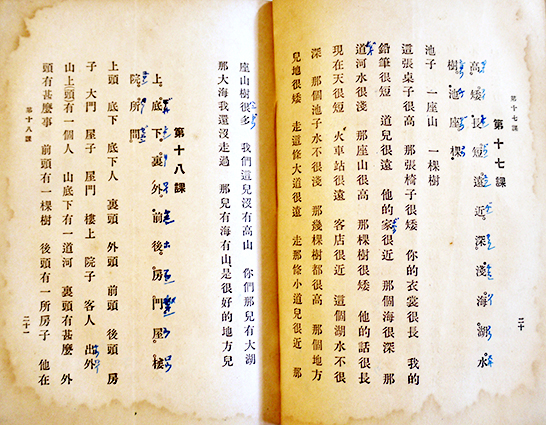 第十七課
第十七課
高 矮 長 短 遠 近 深 淺 海 湖 水
樹 池 座 棵
池子 一座山 一棵樹
這張桌子很高 那張椅子很矮 你的衣裳很長 我的
鉛筆很短 道兒很遠 他的家很近 那個海很深 那
道河水很淺 那座山很高 那棵樹很矮 他的話很長
現在天很短 火車站很遠 客店很近 這個湖水不很
深 那個池子水不很淺 那幾棵樹都很高 那個地方
兒地很矮 走這條大道很遠 走那條小道兒很近 那
二十
座山樹很多 我們這兒沒有高山 你們那兒有大湖
那大海我還沒走過 那兒有海有山是很好的地方兒
第十八課
上 底 下 裏 外 前 後 房 門 屋 樓
院 所 間
上頭 底下 底下人 裏頭 外頭 前頭 後頭 房
子 大門 屋子 屋門 樓上 院子 客人 出外
山上頭有一個人 山底下有一道河 裏頭有甚麼 外
頭有甚麼事 前頭有一棵樹 後頭有一所房子 他在
第十八課
二十一